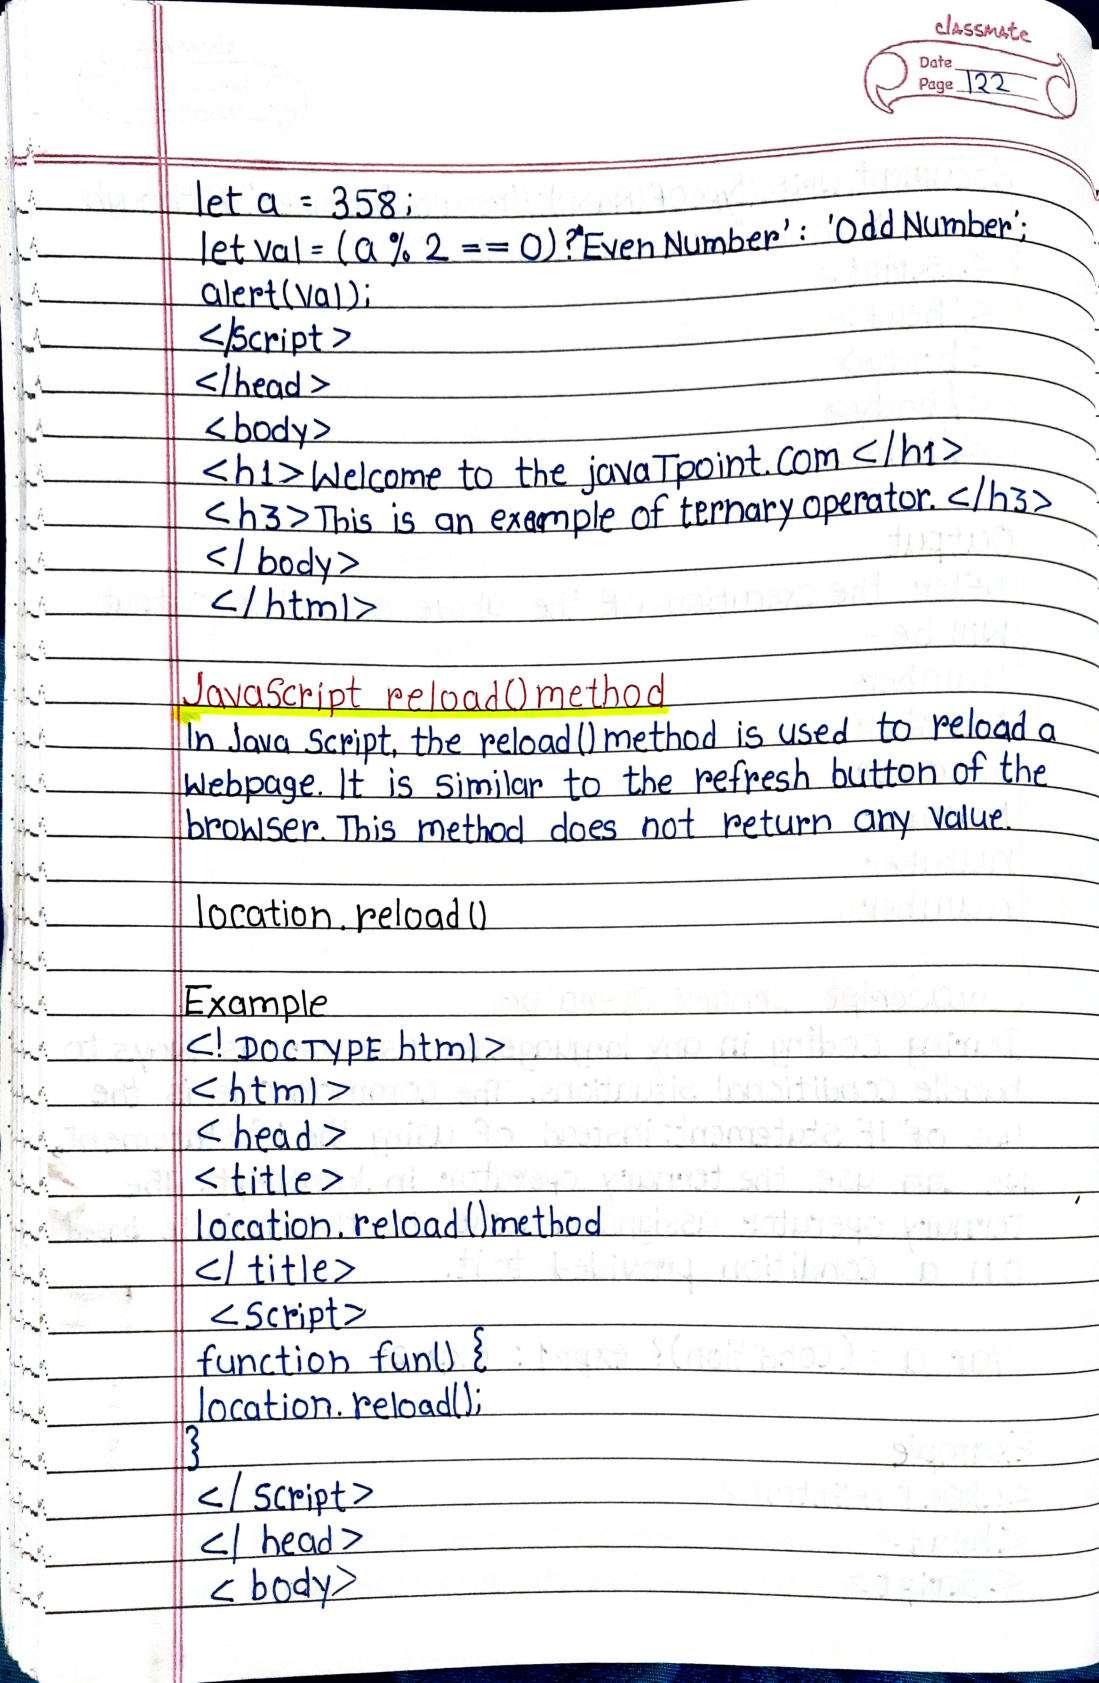 classmate
Date
Page 122
let a = 358;
let val = (a % 2 == 0) ? 'Even Number' : 'Odd Number';
alert(val);
</script>
</head>
<body>
<h1>Welcome to the javaTpoint.com </h1>
<h3>This is an example of ternary operator. </h3>
</ body>
</html>
JavaScript reload() method
In Java Script, the reload() method is used to reload a
Webpage. It is similar to the refresh button of the
browser. This method does not return any value.
location.reload()
Example
<! DOCTYPE html>
<html>
<head>
<title>
location.reload() method
</ title>
<script>
function fun() {
location.reload();
}
</ script>
</ head>
< body>